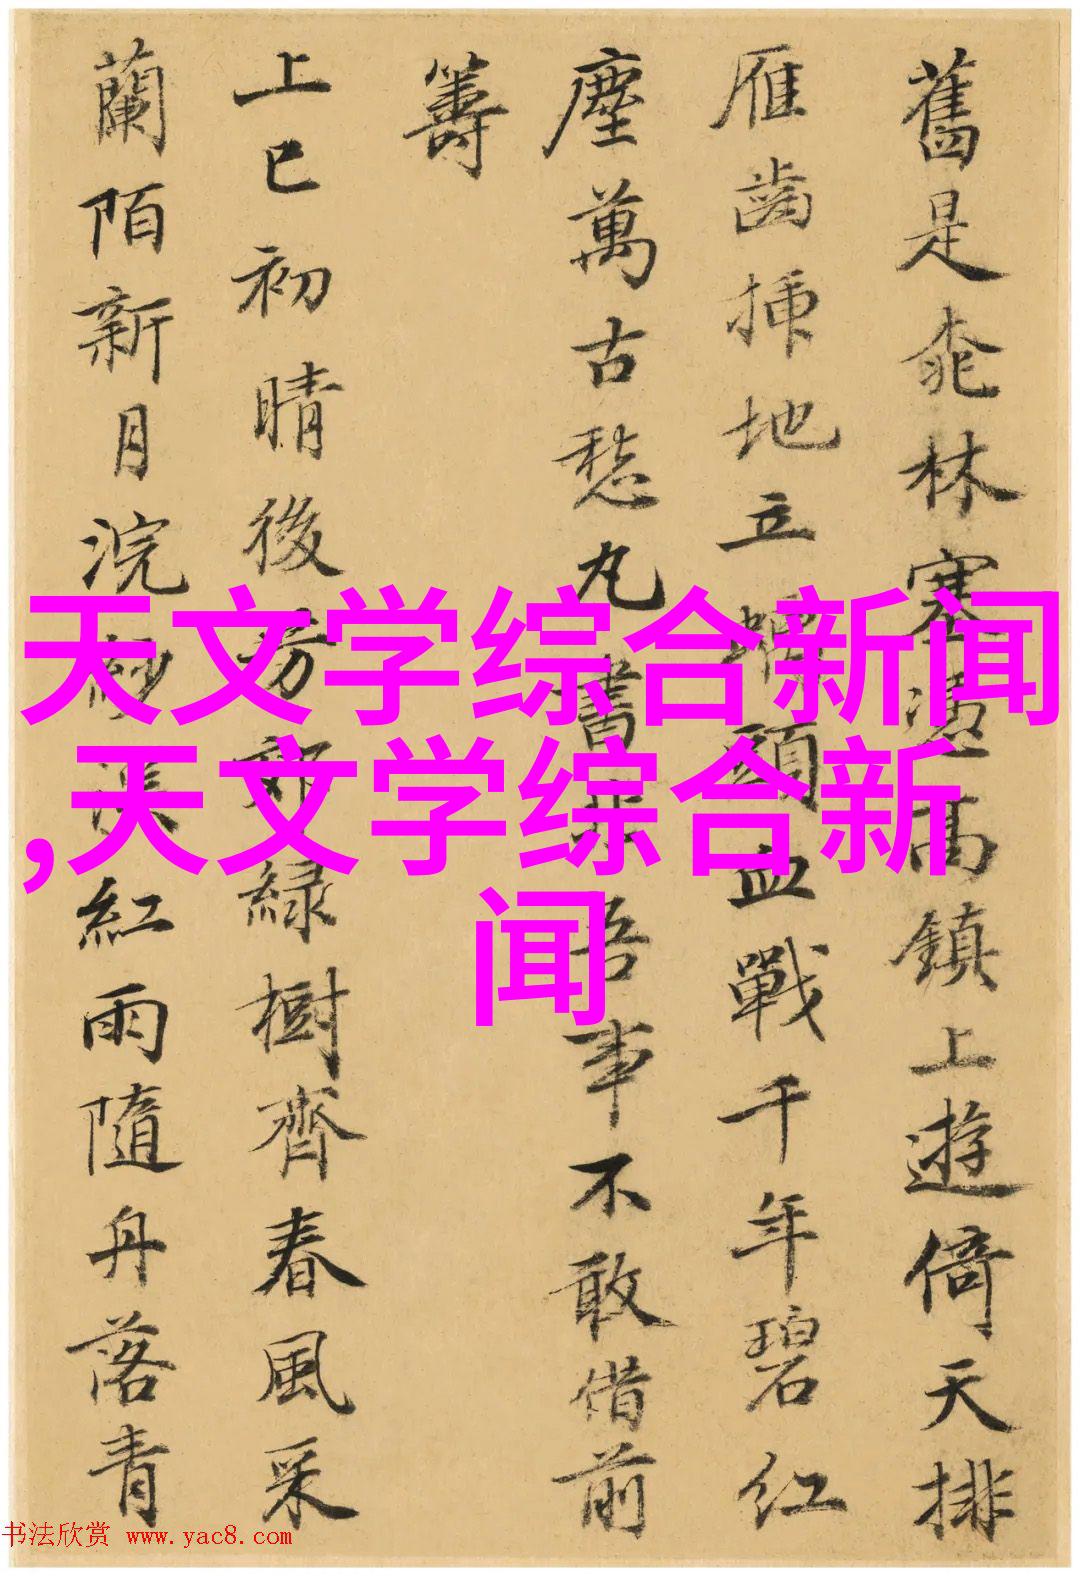 舊是桃林塞還高鎮上遊倚天排
雁齒插地立螭頭血戰千年碧紅
塵萬古愁丸書非吾事不敢借前
籌
上巳初晴後芳郊綠樹齊春風采
蘭陌新月浣紗溪紅雨隨舟落青
天文学综合新闻
,天文学综合新
闻
书法欣赏 www.yac8.com